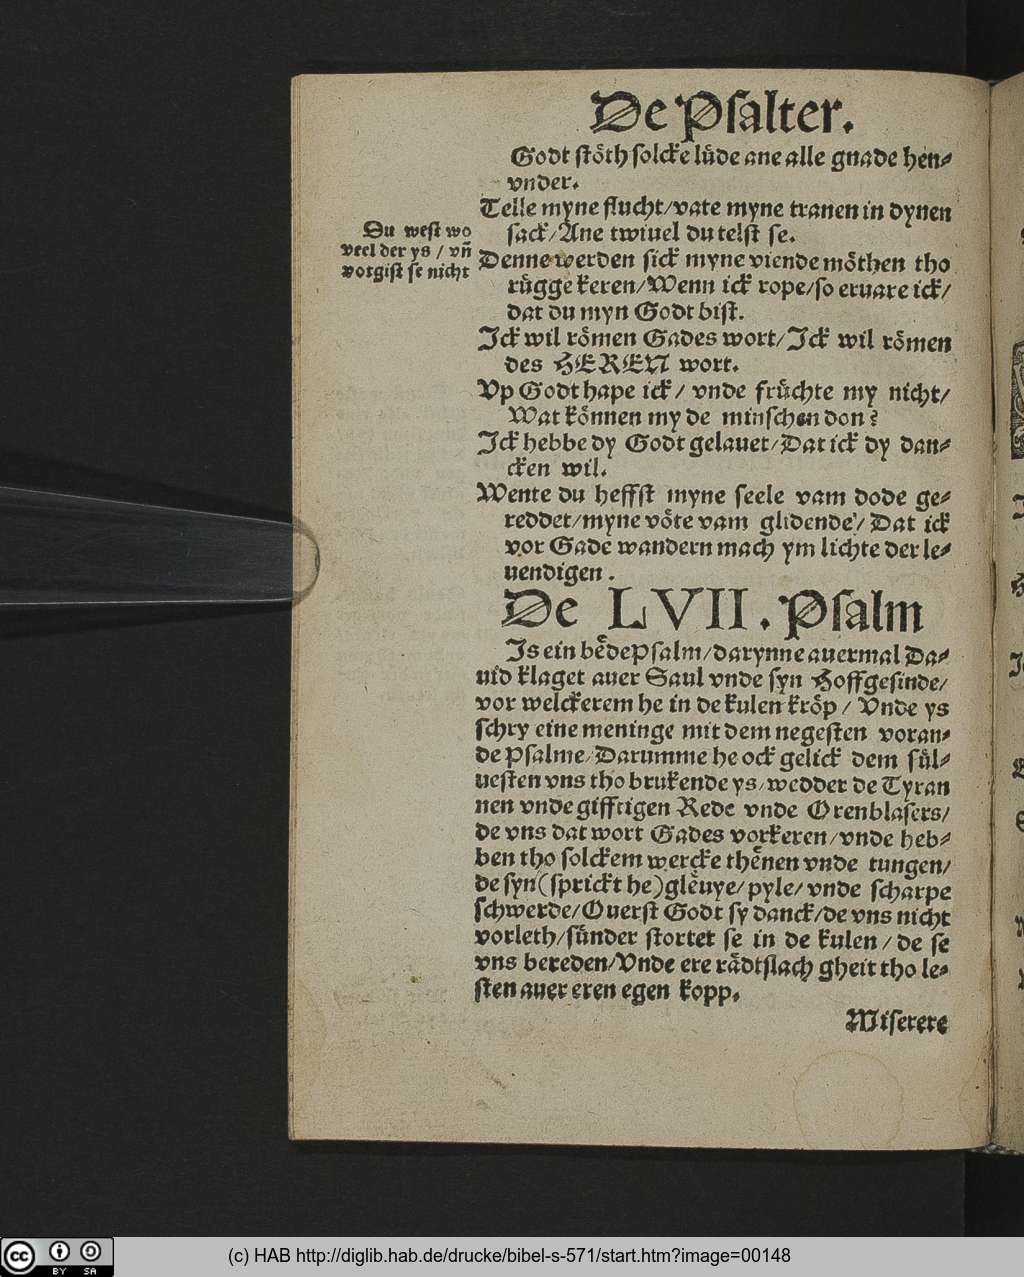 De Psalter.
Godt stöth solcke lüde ane alle gnade hen⸗
vnder.
Telle myne flucht/vate myne tranen in dynen
sack/Ane twiuel du telst se.
Du west wo
veel der ys / vñ
vorgist se nicht
Denne werden sick myne viende möthen tho
rügge keren/Wenn ick rope/so eruare ick/
dat du myn Godt bist.
Ick wil römen Gades wort/Ick wil römen
des HEREN wort.
Vp Godt hape ick / vnde früchte my nicht/
Wat können my de minschen don?
Ick hebbe dy Godt gelauet/Dat ick dy dan⸗
cken wil.
Wente du heffst myne seele vam dode ge⸗
reddet/myne vöte vam glidende/ Dat ick
vor Gade wandern mach ym lichte der le⸗
uendigen .
De LVII. Psalm
Is ein bedePsalm/darynne auermal Da⸗
uid klaget auer Saul vnde syn Hoffgesinde/
vor welckerem he in de kulen kröp / Vnde ys
schry eine meninge mit dem negesten voran⸗
de Psalme/Darumme he ock gelick dem sül⸗
uesten vns tho brukende ys/wedder de Tyran
nen vnde gifftigen Rede vnde Orenblasers/
de vns dat wort Gades vorkeren/vnde heb⸗
ben tho solckem wercke thenen vnde tungen/
de syn(sprickt he)gleuye/pyle/vnde scharpe
schwerde/Ouerst Godt sy danck/de vns nicht
vorleth/sünder stortet se in de kulen / de se
vns bereden/Vnde ere rädtslach gheit tho le⸗
sten auer eren egen kopp.
Miserere
(c) HAB http://diglib.hab.de/drucke/bibel-s-571/start.htm?image=00148
cc BY SA